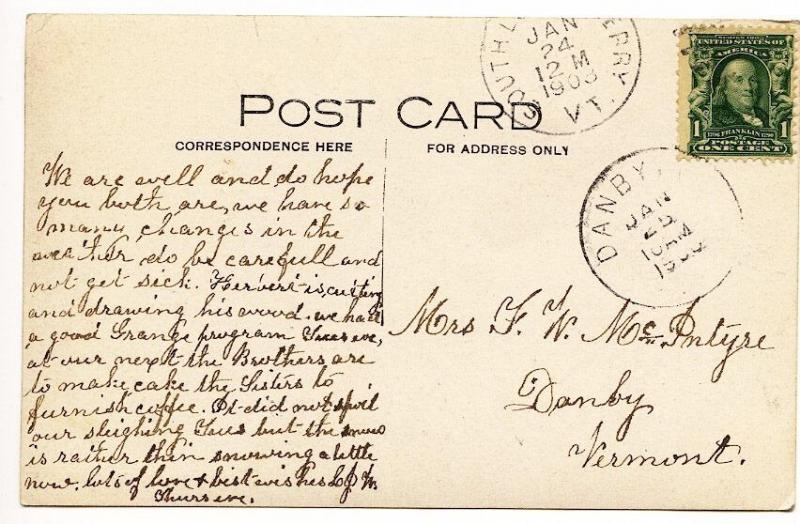 SOUTH L ERRY
JAN
24
12 M
1908
VT.
UNITED STATES OF
AMERICA
1 1
FRANKLIN
POSTAGE
ONE CENT
POST CARD
CORRESPONDENCE HERE
FOR ADDRESS ONLY
DANBY,
JAN
10 AM
We are well and do hope
you both are, we have so
many changes in the
weather do be carefull and
not get sick. Herbert is cuting
and drawing his wood. we had
a good Grange program Tues eve,
at our next the Brothers are
to make cake the Sisters to
furnish coffee. It did not spoil
our sleighing Tues but the snow
is rather thin snowing a little
now. lots of love & best wishes
Thurs eve.
Mrs F. W. McIntyre
Danby
Vermont.